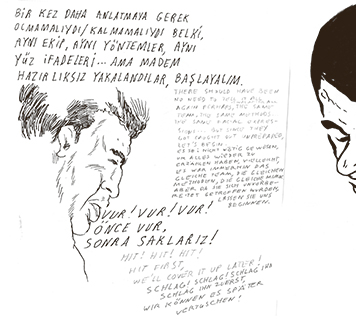 BİR KEZ DAHA ANLATMAYA GEREK
OLMAMALIYDI/KALMAMALIYDI BELKİ,
AYNI EKİP, AYNI YÖNTEMLER, AYNI
YÜZ İFADELERİ... AMA MADEM
HAZIRLIKSIZ YAKALANDILAR, BAŞLAYALIM.
THERE SHOULD HAVE BEEN
NO NEED TO
AGAIN PERHAPS, THE SAME
TEAM, THE SAME METHODS,
THE SAME FACIAL EXPRES-
SIONS... BUT SINCE THEY
GOT CAUGHT OUT UNPREPARED,
LET'S BEGIN.
ES SOLL NICHT NÖTIG GEWESEN,
UM ALLES WIEDER ZU
ERZÄHLEN HABEN, VIELLEICHT,
ES WAR IMMERHIN DAS
GLEICHE TEAM, DIE GLEICHEN
METHODEN, DIE GLEICHE
ABER DA SIE SICH UNVORBE-
REITET GETROFFEN WURDEN,
LASSEN SIE UNS
BEGINNEN.
VUR! VUR! VUR!
ÖNCE VUR,
SONRA SAKLARIZ!
HIT! HIT! HIT!
HIT FIRST,
WE'LL COVER IT UP LATER!
SCHLAG! SCHLAG! SCHLAG IHN
SCHLAG IHN ZUERST,
WIR KÖNNEN ES SPÄTER
VERTUSCHEN!